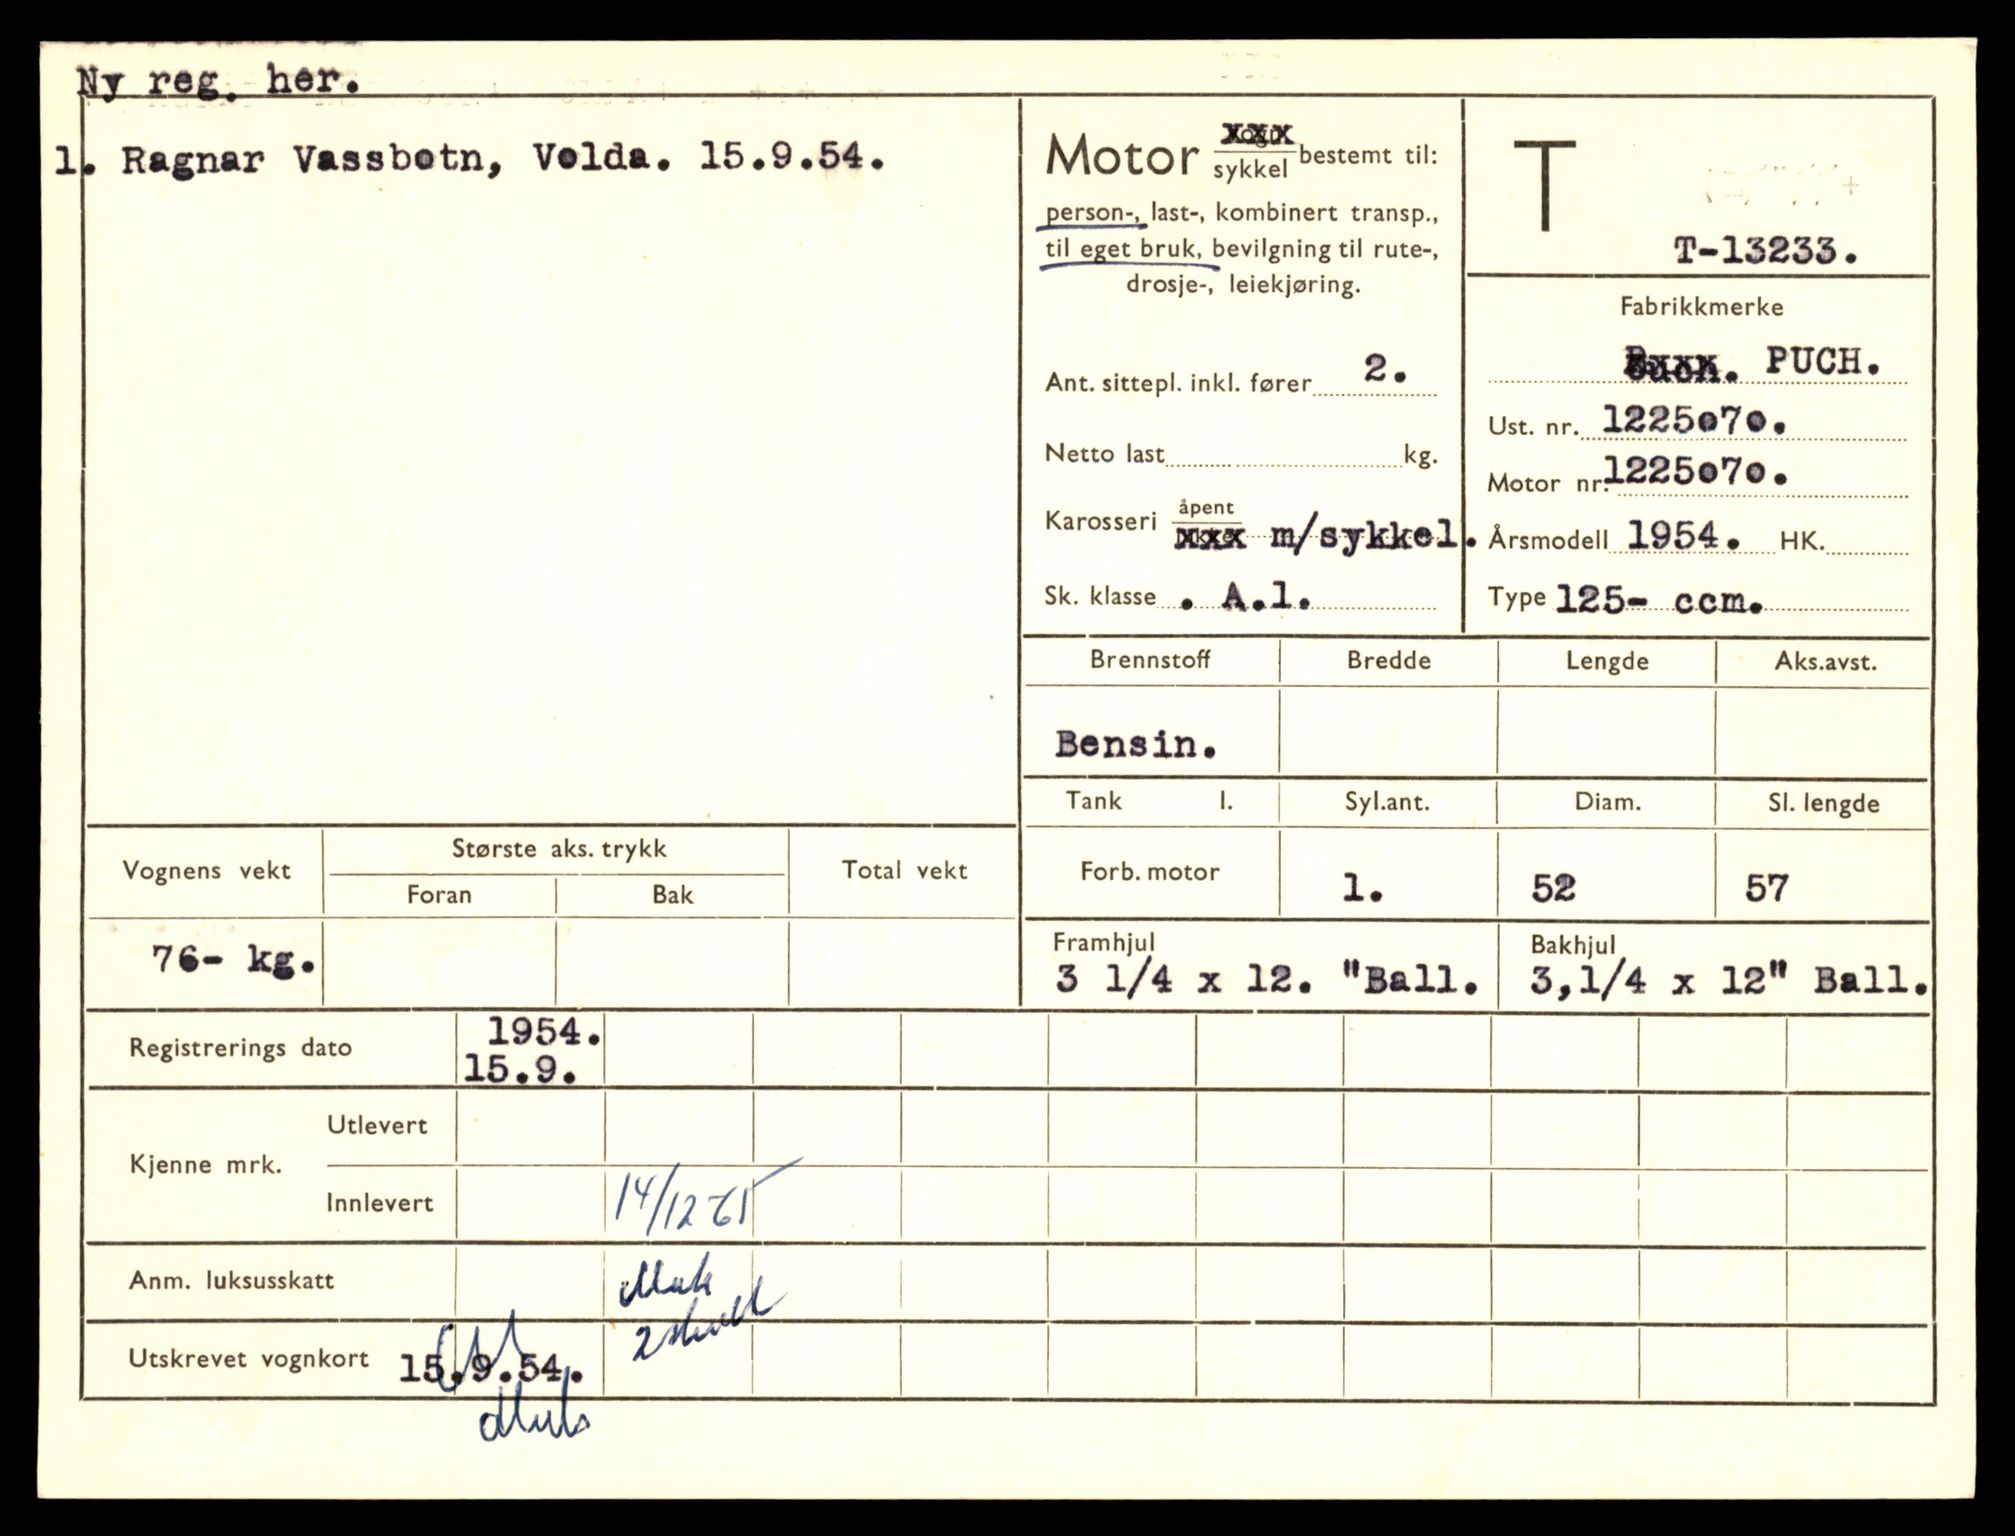 Ny reg. her.
1. Ragnar Vassbotn, Volda. 15.9.54.
Motor xxx sykkel bestemt til:
person-, last-, kombinert transp.,
til eget bruk, bevilgning til rute-,
drosje-, leiekjøring.
Ant. sittepl. inkl. fører 2.
Netto last kg.
Karosseri åpent xxx m/sykkel.
Sk. klasse . A.1.
T
T-13233.
Fabrikkmerke
PUCH.
Ust. nr. 1225070.
Motor nr. 1225070.
Årsmodell 1954. HK.
Type 125- ccm.
Brennstoff Bredde Lengde Aks.avst.
Bensin.
Tank l. Syl.ant. Diam. Sl. lengde
Forb. motor 1. 52 57
Framhjul Bakhjul
3 1/4 x 12. "Ball. 3,1/4 x 12" Ball.
Vognens vekt Største aks. trykk Total vekt
Foran Bak
76- kg.
Registrerings dato 1954.
15.9.
Kjenne mrk. Utlevert
Innlevert 14/12 65
Anm. luksusskatt
Utskrevet vognkort 15.9.54.